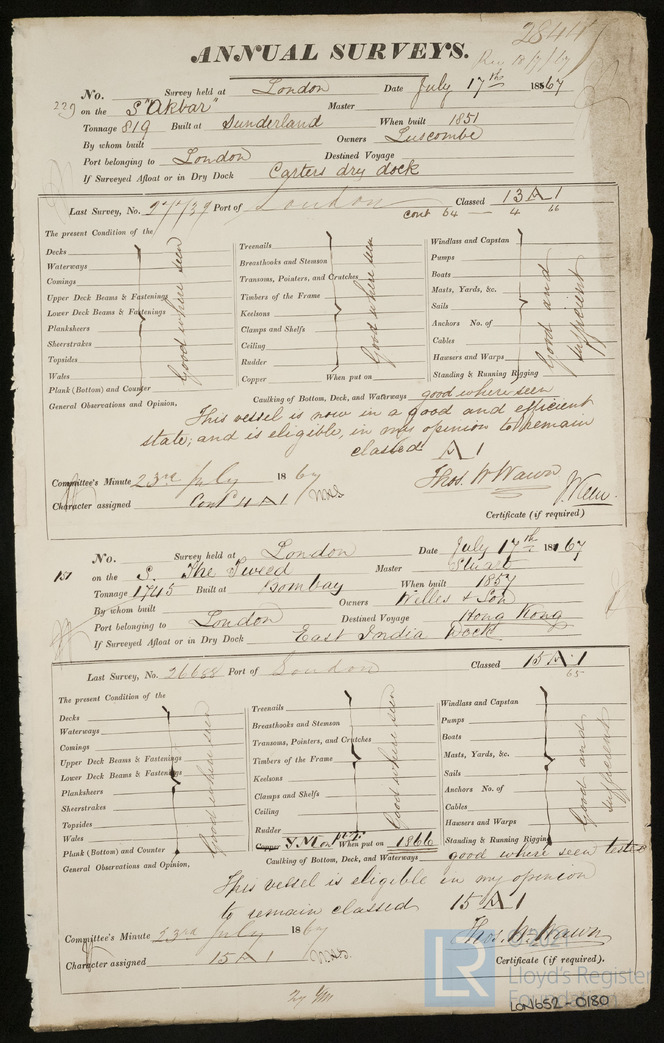 28444
ANNUAL SURVEYS.
Rec 18/7/67
No. Survey held at London Date July 17th 1867
229 on the S "Akbar" Master
Tonnage 819 Built at Sunderland When built 1851
By whom built Owners Luscombe
Port belonging to London Destined Voyage
If Surveyed Afloat or in Dry Dock Carters dry dock
Last Survey, No. Port of London Classed 13 A 1
cont 64 — 4 66
The present Condition of the
Decks
Waterways
Comings
Upper Deck Beams & Fastenings
Lower Deck Beams & Fastenings
Planksheers
Sheerstrakes
Topsides
Wales
Plank (Bottom) and Counter
Good where seen
Treenails
Breasthooks and Stemson
Transoms, Pointers, and Crutches
Timbers of the Frame
Keelsons
Clamps and Shelfs
Ceiling
Rudder
Copper When put on
Good where seen
Windlass and Capstan
Pumps
Boats
Masts, Yards, &c.
Sails
Anchors No. of
Cables
Hawsers and Warps
Standing & Running Rigging
Good and sufficient
Caulking of Bottom, Deck, and Waterways good where seen
General Observations and Opinion,
This vessel is now in a good and efficient
state; and is eligible, in my opinion to remain
classed A 1
Committee's Minute 23rd July 1867
Thos. W Wawn
Character assigned Contd 4 A 1
Certificate (if required)
No. Survey held at London Date July 17th 1867
151 on the S. The Tweed Master Stuart
Tonnage 1745 Built at Bombay When built 1857
By whom built Owners Willes & Son
Port belonging to London Destined Voyage Hong Kong
If Surveyed Afloat or in Dry Dock East India Dock
Last Survey, No. 26688 Port of London Classed 15 A 1
65
The present Condition of the
Decks
Waterways
Comings
Upper Deck Beams & Fastenings
Lower Deck Beams & Fastenings
Planksheers
Sheerstrakes
Topsides
Wales
Plank (Bottom) and Counter
Good where seen
Treenails
Breasthooks and Stemson
Transoms, Pointers, and Crutches
Timbers of the Frame
Keelsons
Clamps and Shelfs
Ceiling
Rudder
Copper Y.M. on felt When put on 1866
Good where seen
Windlass and Capstan
Pumps
Boats
Masts, Yards, &c.
Sails
Anchors No. of
Cables
Hawsers and Warps
Standing & Running Rigging
Good and sufficient
Caulking of Bottom, Deck, and Waterways good where seen tested
General Observations and Opinion,
This vessel is eligible in my opinion
to remain classed 15 A 1
Committee's Minute 23rd July 1867
Thos. W. Wawn
Character assigned 15 A 1
Certificate (if required).
LR
© 2021
Lloyd's Register
Foundation
LON652-0180